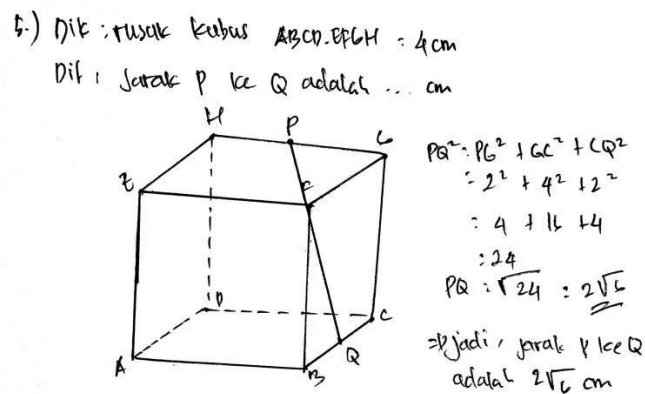 5.) Dik : rusuk kubus ABCD.EFGH = 4 cm
Dit : Jarak P ke Q adalah ... cm
H P G
E F
D C
A B Q
PQ² = PG² + GC² + CQ²
= 2² + 4² + 2²
= 4 + 16 + 4
= 24
PQ = √24 = 2√6
⇒ Jadi, jarak P ke Q
adalah 2√6 cm